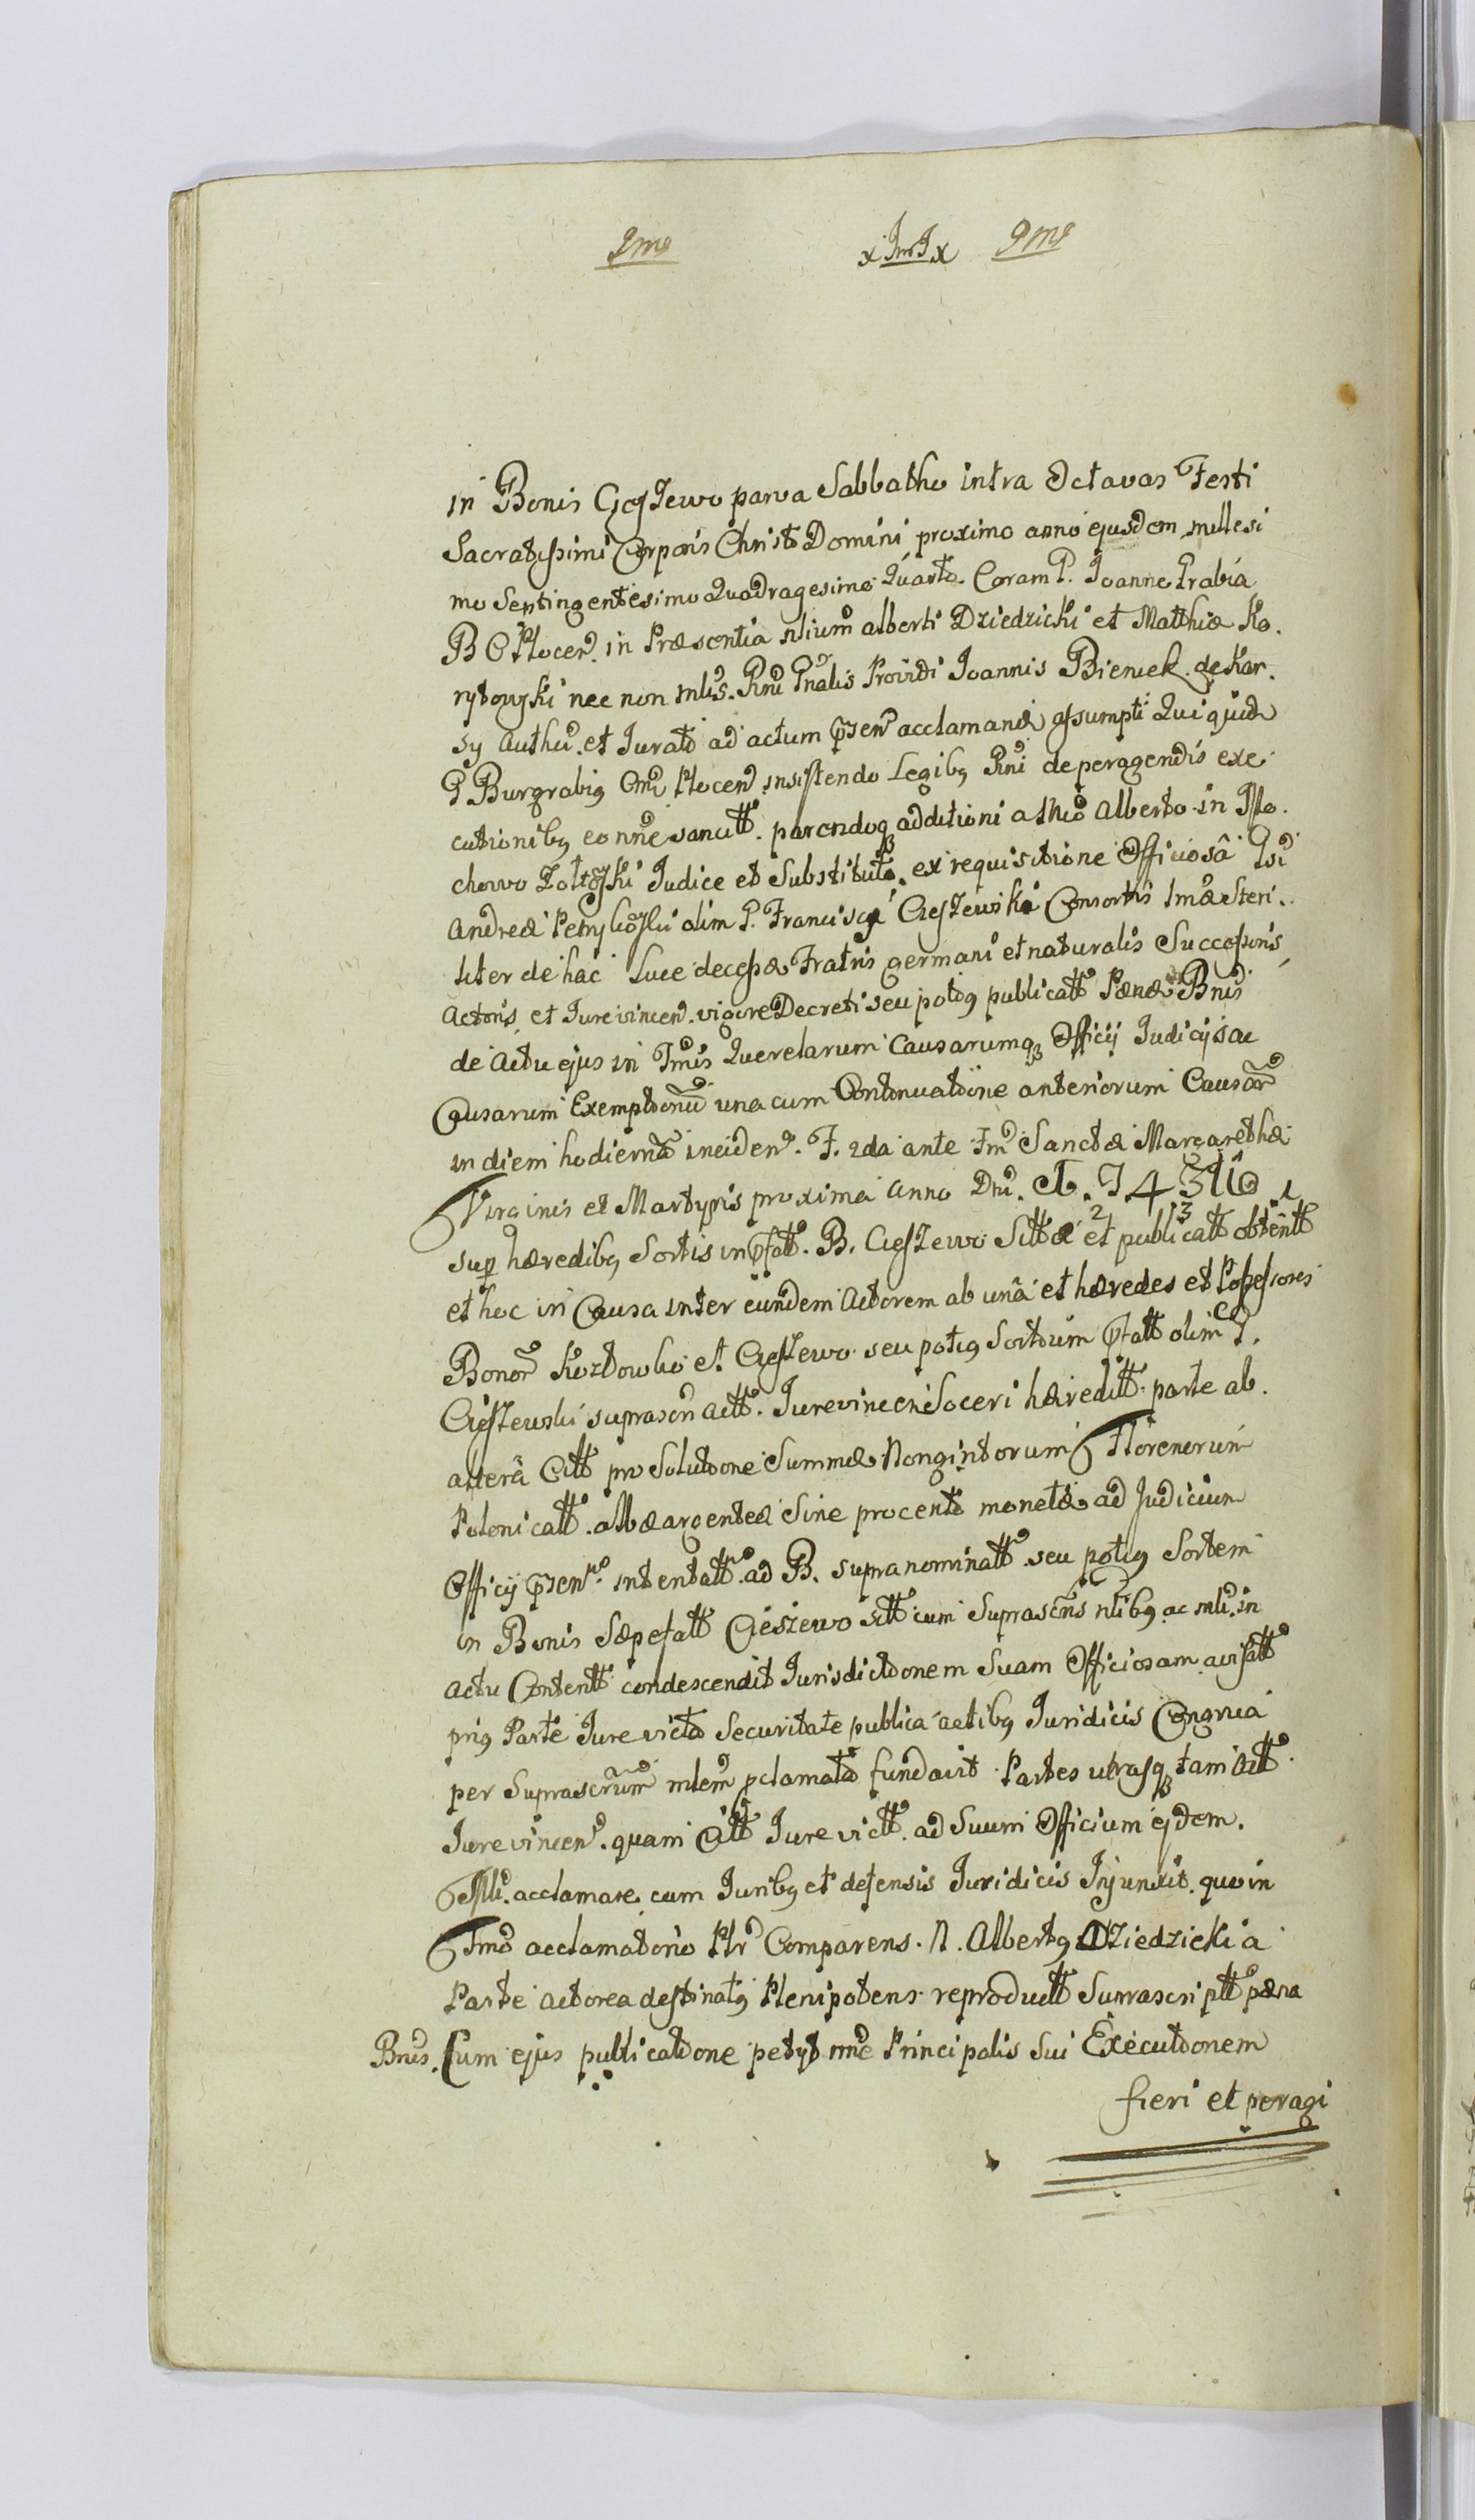 In Bonis Cieszewo parva Sabbatho intra Octavas Festi
Sacratissimi Corporis Christi Domini proximo anno ejusdem millesi
mo Septingentesimo Quadragesimo Quarto. Coram P. Joanne Prabia
B C Plocen. in Præsentia nlium alberti Dziedzicki et Matthiæ Ko.
rytowski nec non mlis. Rni Gnalis Providi Joannis Bieniek. de Kar.
sy authen. et Jurato ad actum pnsen acclamand assumpti Qui quidem
P Burgrabig Cni Plocen. insistendo Legibg Rni de peragendis exe
cutionibg eo nne sancitt. parendoqz additioni a Mco Alberto in Glo.
chowo Zoltoski Judice et Substituto. ex requisitione Officiosâ Gsi
Andreæ Petrykoski olim P. Francisci Cieszewski Consortis Imæ Steri.
liter de hac Luce decessæ Fratris germani et naturalis Successoris
Actoris et Jurevincen. vigore Decreti seu potig publicatt Pænæ Bnis
de Actu ejus in Tmis Querelarum Causarumqz Officij Judicijs ac
Causarum Exemptonum una cum Contonuatione anteriorum Causar
in diem hodierna inciden. F. 2da ante Fm Sanctæ Margarethæ
Virginis et Martyris proxima Anno Dni.
sup hæredibg Sortis in pfatt. B. Cieszewo Sittæ et publicatt obtentt
et hoc in Causa inter eundem Actorem ab unâ et hæredes et Possessores
Bonor Koztowko et Cieszewo seu potig Sortium pfatt olim P.
Cieszewski suprascri Actt. Jurevincen Soceri hæreditt. parte ab.
alterâ Citt pro Solutone Summæ Nongintorum Florenorum
Polonicatt. albæ argenteæ Sine procento monetæ ad Judicium
Officij pnsen. intentatt. ad B. supranominatt. seu potig Sortem
in Bonis Sæpefatt Cieszewo sitt cum Suprascris nlibg ac mli. in
actu Contentt condescendit Jurisdictonem Suam Officiosam avisatt
prig Parte Jure victa Securitate publica actibg Juridicis Congrua
per Suprascrum mlem pclamata fundavit Partes utrasqz tam Actt
Jurevincen. quam Citt Jure victt. ad Suum Officium ejdem.
Mli. acclamare cum Juribg et defensis Juridicis Injunxit. quo in
Tmo acclamatorio Plr Comparens. N. Albertg Dziedzicki a
Parte actorea destinatg Plenipotens. reproductt Suprascriptt pæna
Bnis. Cum ejus publicatone petyt nne Principalis Sui Executonem
fieri et peragi